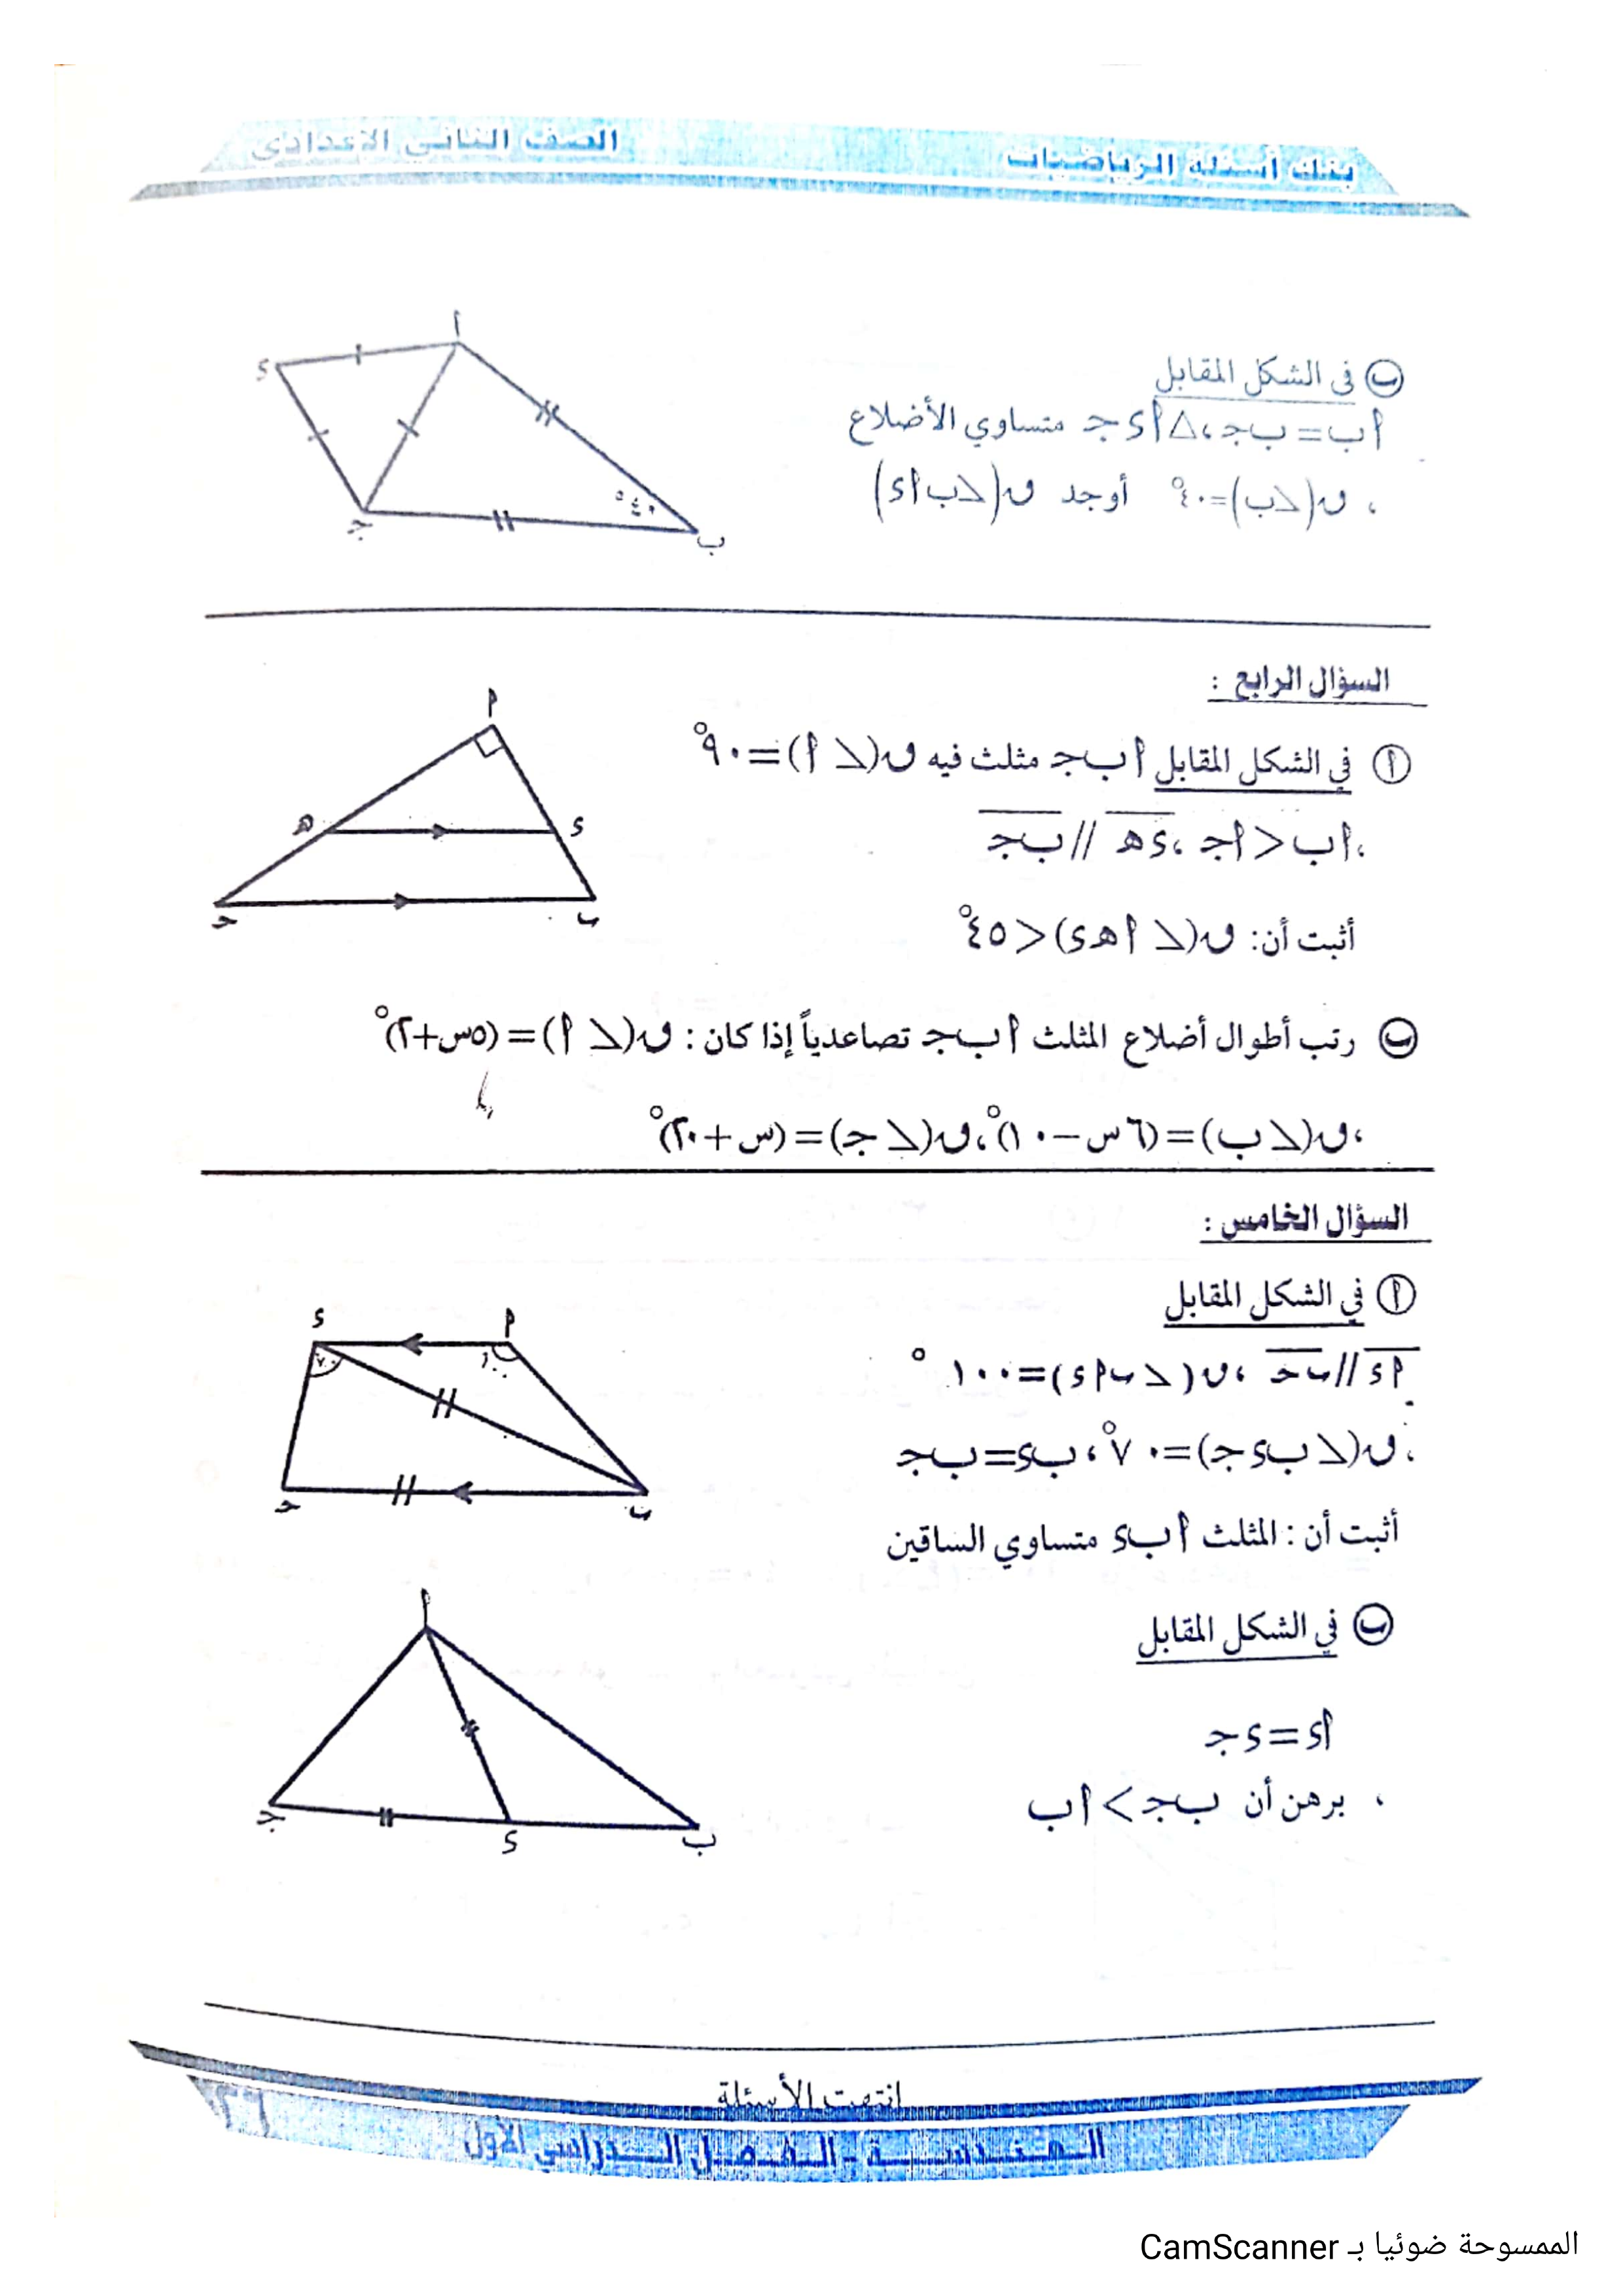 بنك أسئلة الرياضيات
الصف الثاني الاعدادي
ب في الشكل المقابل
أب = بج ، △أءج متساوي الأضلاع
، ق(∠ب)=٤٠° أوجد ق(∠بأء)
أ
ء
٤٠°
ج
ب
السؤال الرابع :
أ في الشكل المقابل أبج مثلث فيه ق(∠أ)=٩٠°
،أب < أج ، ءه // بج
أثبت أن: ق(∠أهء) < ٤٥°
أ
ه
ء
ح
ب
ب رتب أطوال أضلاع المثلث أبج تصاعدياً إذا كان : ق(∠أ) = (٥س+٢)°
،ق(∠ب)=(٦س−١٠)° ،ق(∠ج)=(س+٢٠)°
السؤال الخامس :
أ في الشكل المقابل
أء // بح ،ق(∠بأء)=١٠٠°
،ق(∠بءج)=٧٠° ، بء=بج
أثبت أن : المثلث أبء متساوي الساقين
ء
أ
٧٠
ح
ب
ب في الشكل المقابل
أء = ءج
، برهن أن بج > أب
أ
ج
ء
ب
انتهت الأسئلة
الهندسة - الفصل الدراسي الأول
الممسوحة ضوئيا بـ CamScanner